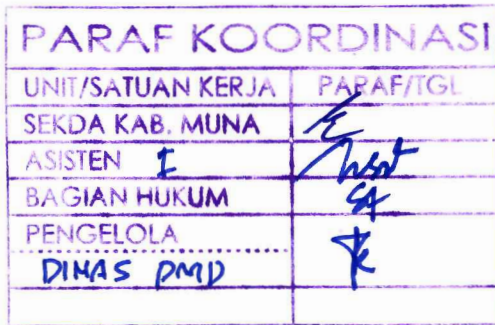 PARAF KOORDINASI
UNIT/SATUAN KERJA PARAF/TGL
SEKDA KAB. MUNA
ASISTEN I
BAGIAN HUKUM
PENGELOLA
DINAS PMD